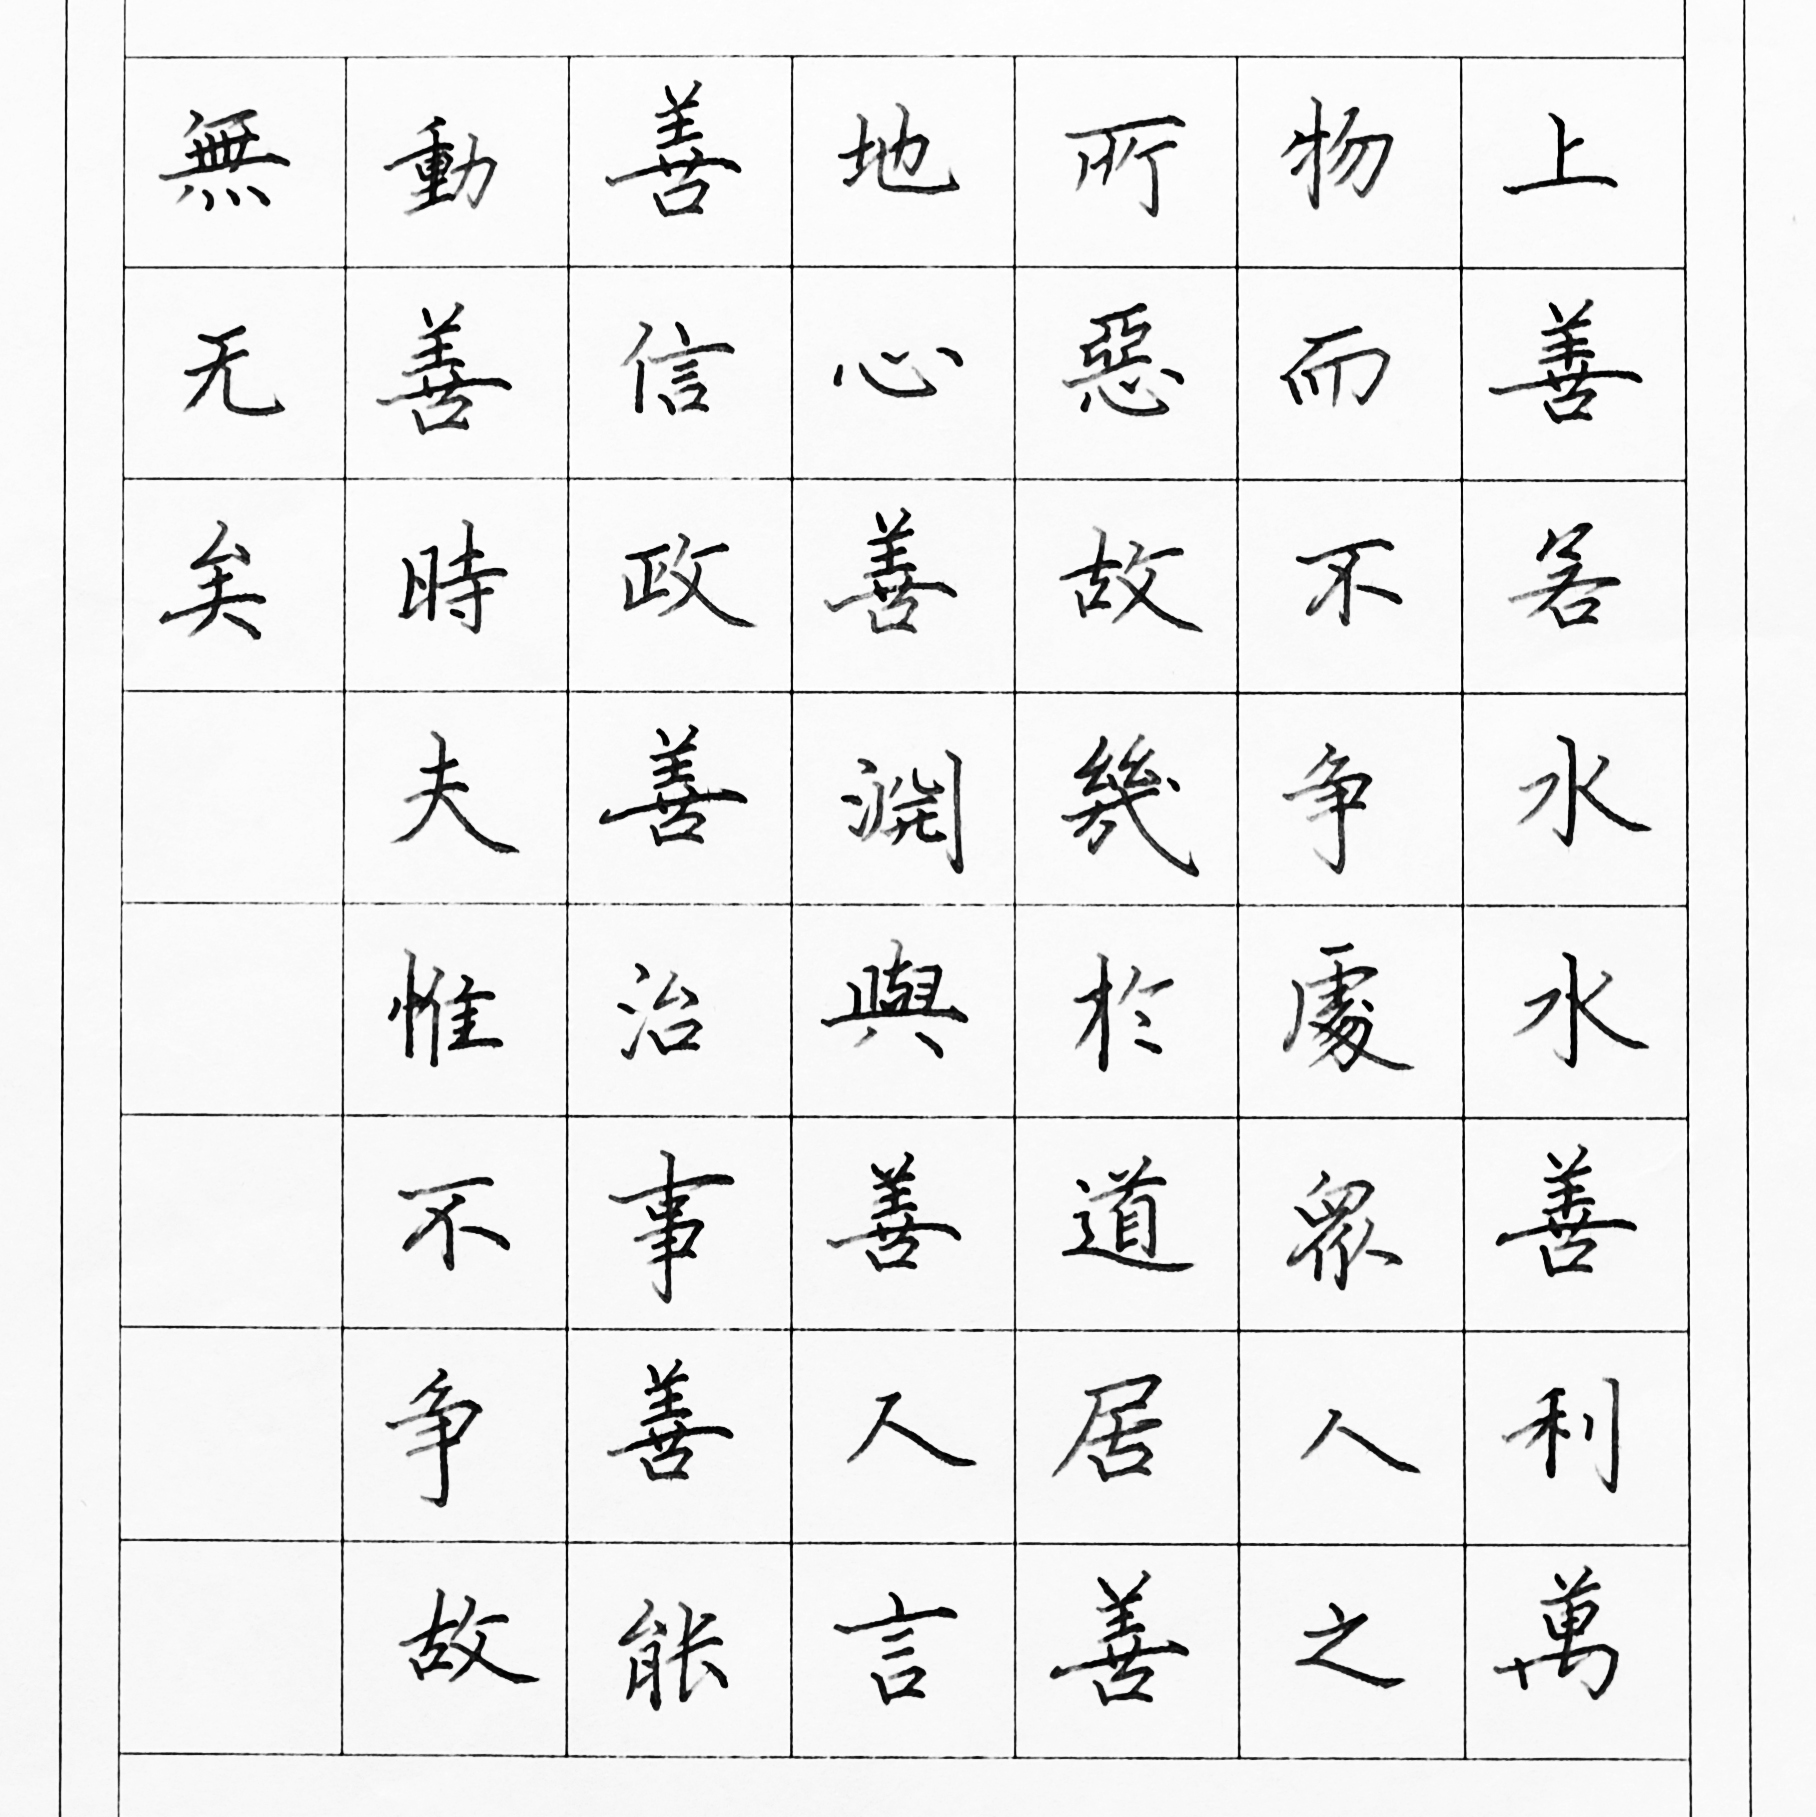 上善若水水善利萬
物而不争處眾人之
所惡故幾於道居善
地心善淵與善人言
善信政善治事善能
動善時夫惟不争故
無尤矣